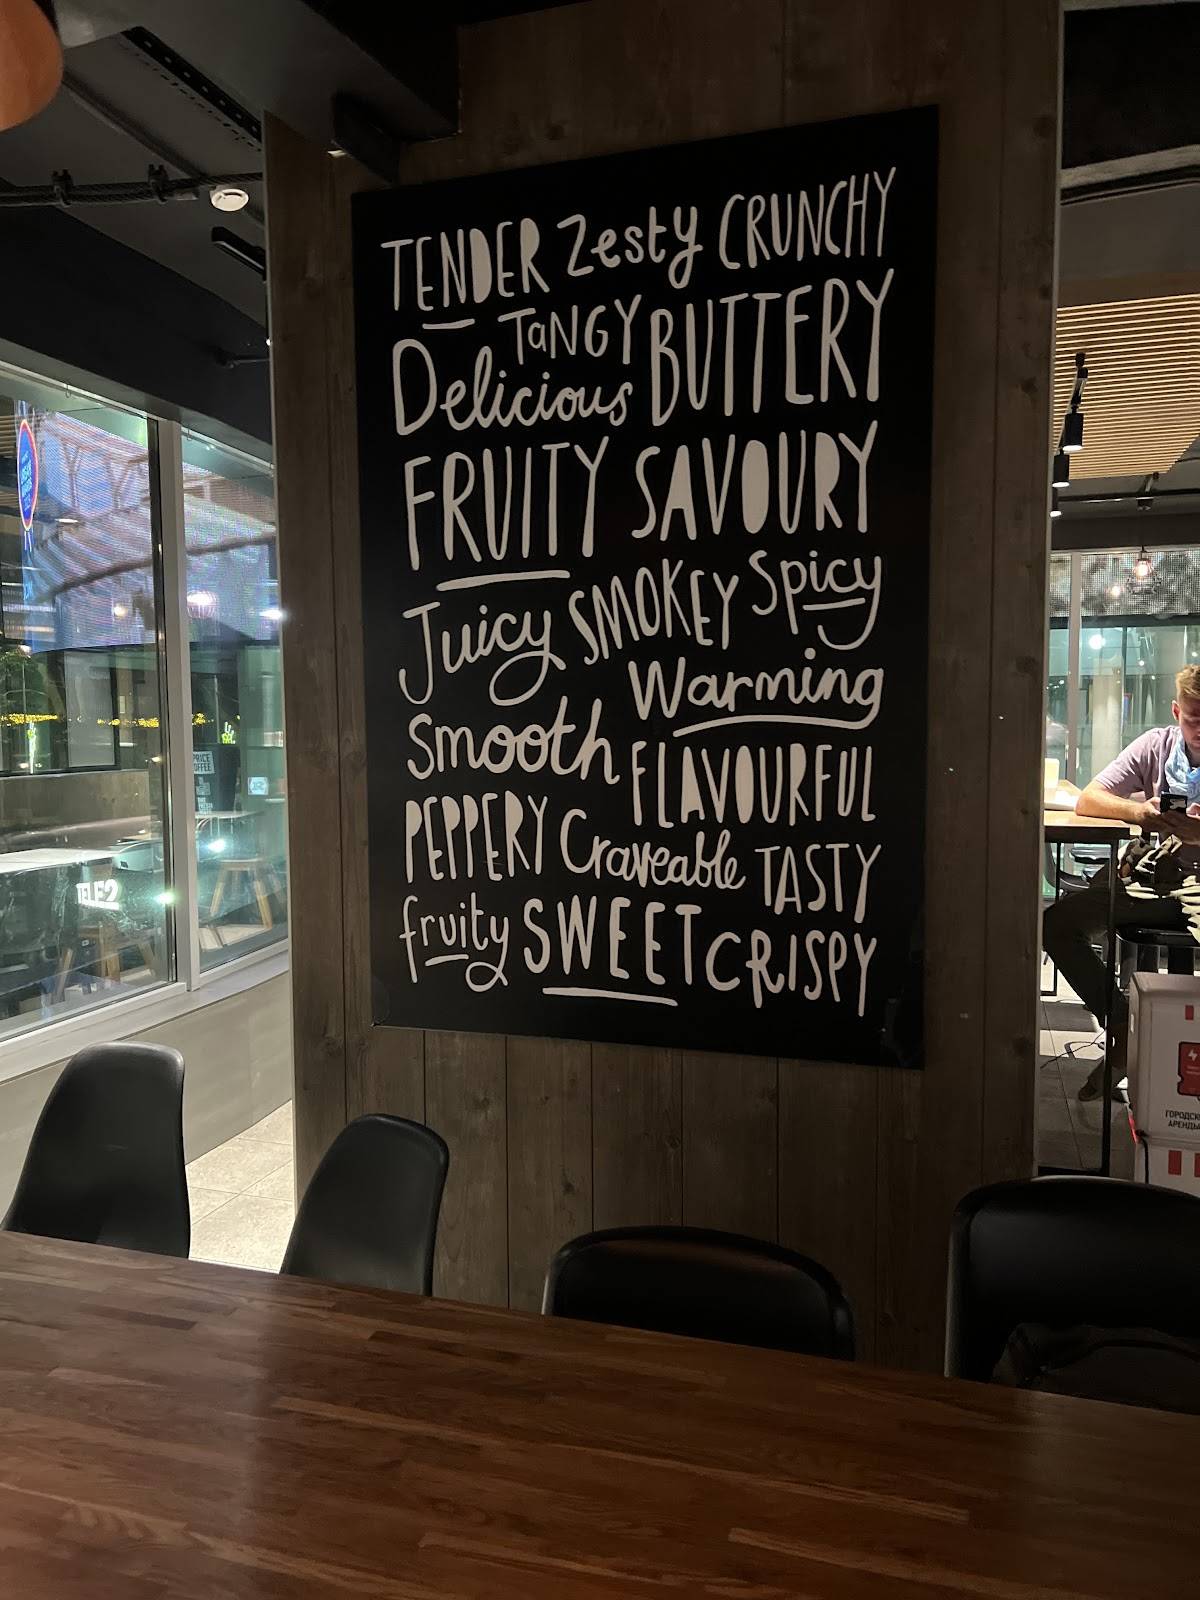 TENDER Zesty CRUNCHY
TaNGY BUTTERY
Delicious
FRUITY SAVOURY
Juicy SMOKEY Spicy
Warming
Smooth FLAVOURFUL
PEPPERY Craveable TASTY
fruity SWEET CRISPY
TELE2